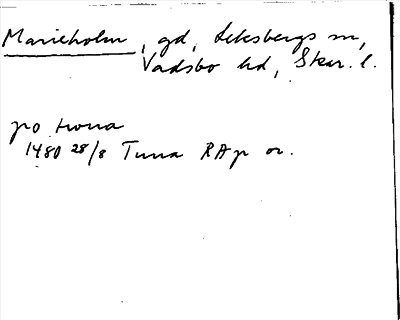 Marieholm, gd, Leksbergs sn,
Vadsbo hd, Skar. l.
po Twna
1480 28/8 Tuna RAp or.